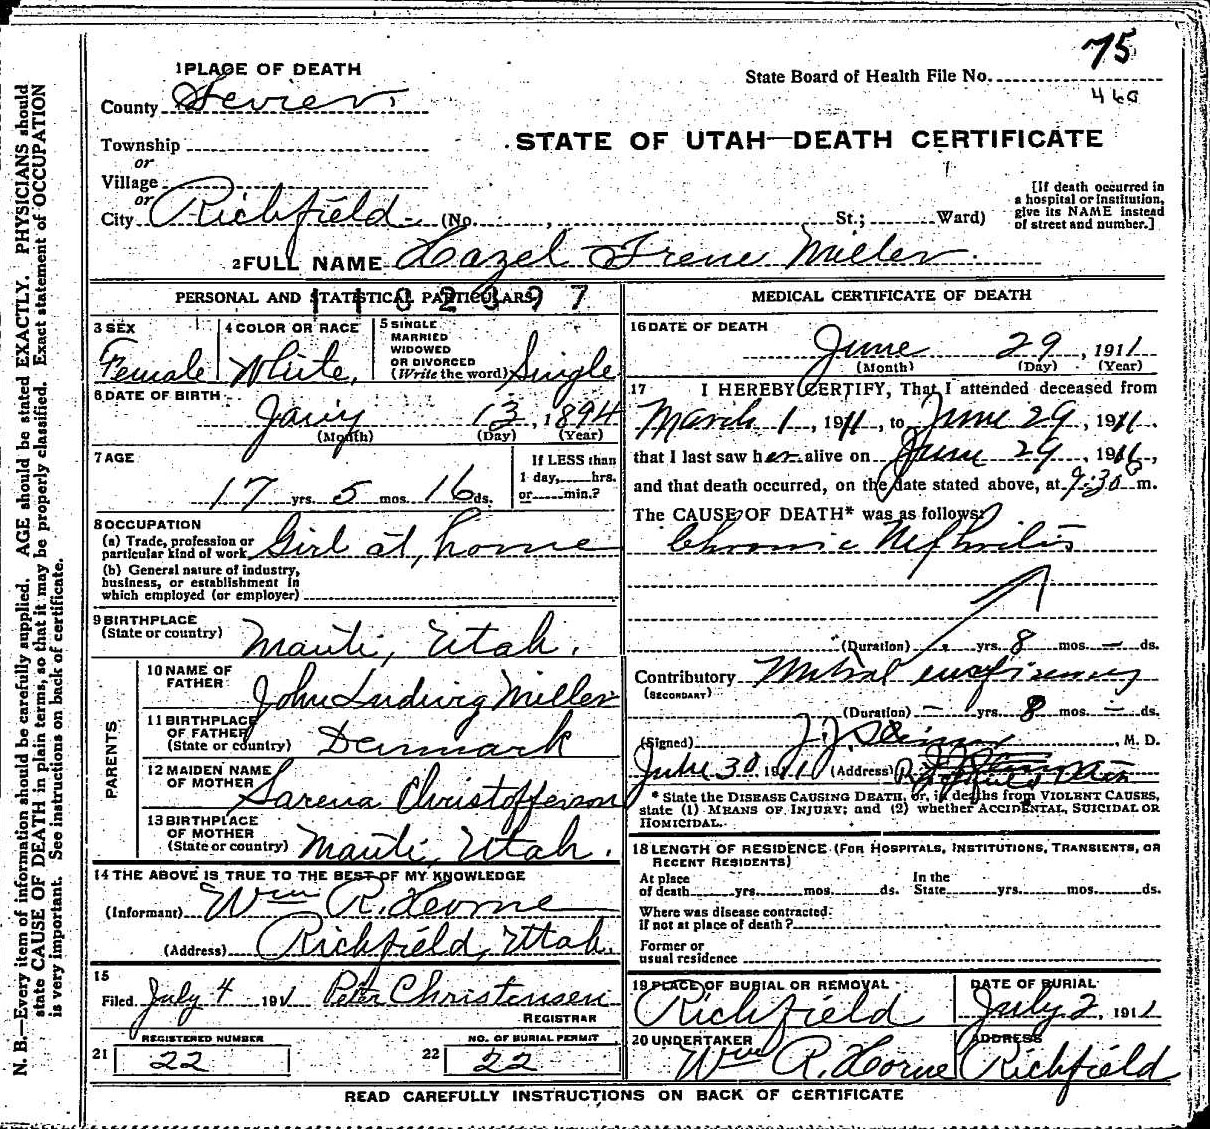 75
1 PLACE OF DEATH
State Board of Health File No.
460
County Sevier.
STATE OF UTAH—DEATH CERTIFICATE
Township
or
Village
or
City Richfield (No. , St.; Ward)
[If death occurred in
a hospital or institution,
give its NAME instead
of street and number.]
2 FULL NAME Hazel Irene Miller.
PERSONAL AND STATISTICAL PARTICULARS
3 SEX
Female
4 COLOR OR RACE
White,
5 SINGLE
MARRIED
WIDOWED
OR DIVORCED
(Write the word) Single
6 DATE OF BIRTH
Jany 13, 1894
(Month) (Day) (Year)
7 AGE
17 yrs. 5 mos. 16 ds.
If LESS than
1 day, hrs.
or min.?
8 OCCUPATION
(a) Trade, profession or
particular kind of work Girl at home
(b) General nature of industry,
business, or establishment in
which employed (or employer)
9 BIRTHPLACE
(State or country) Manti, Utah.
PARENTS
10 NAME OF
FATHER John Ludwig Miller
11 BIRTHPLACE
OF FATHER
(State or country) Denmark
12 MAIDEN NAME
OF MOTHER Sarena Christofferson
13 BIRTHPLACE
OF MOTHER
(State or country) Manti, Utah.
14 THE ABOVE IS TRUE TO THE BEST OF MY KNOWLEDGE
(Informant) Wm R. Horne
(Address) Richfield, Utah.
15
Filed July 4 191 1 Peter Christensen
REGISTRAR
REGISTERED NUMBER
21 22
NO. OF BURIAL PERMIT
22 22
MEDICAL CERTIFICATE OF DEATH
16 DATE OF DEATH
June 29, 1911
(Month) (Day) (Year)
17 I HEREBY CERTIFY, That I attended deceased from
March 1, 1911, to June 29, 1911.
that I last saw her alive on June 29, 1911,
and that death occurred, on the date stated above, at 9:30 m.
The CAUSE OF DEATH* was as follows:
Chronic Nephritis
(Duration) yrs. 8 mos. — ds.
Contributory Mitral
(SECONDARY)
(Duration) — yrs. 8 mos. — ds.
(Signed) , M. D.
30 1911 (Address)
* State the DISEASE CAUSING DEATH, or, in deaths from VIOLENT CAUSES,
state (1) MEANS OF INJURY; and (2) whether ACCIDENTAL, SUICIDAL OR
HOMICIDAL.
18 LENGTH OF RESIDENCE (FOR HOSPITALS, INSTITUTIONS, TRANSIENTS, OR
RECENT RESIDENTS)
At place
of death yrs. mos. ds.
In the
State yrs. mos. ds.
Where was disease contracted.
if not at place of death?
Former or
usual residence
19 PLACE OF BURIAL OR REMOVAL
Richfield
DATE OF BURIAL
July 2, 1911
20 UNDERTAKER
Wm R. Horne
ADDRESS
Richfield
READ CAREFULLY INSTRUCTIONS ON BACK OF CERTIFICATE
N. B.—Every item of information should be carefully supplied. AGE should be stated EXACTLY. PHYSICIANS should
state CAUSE OF DEATH in plain terms, so that it may be properly classified. Exact statement of OCCUPATION
is very important. See instructions on back of certificate.